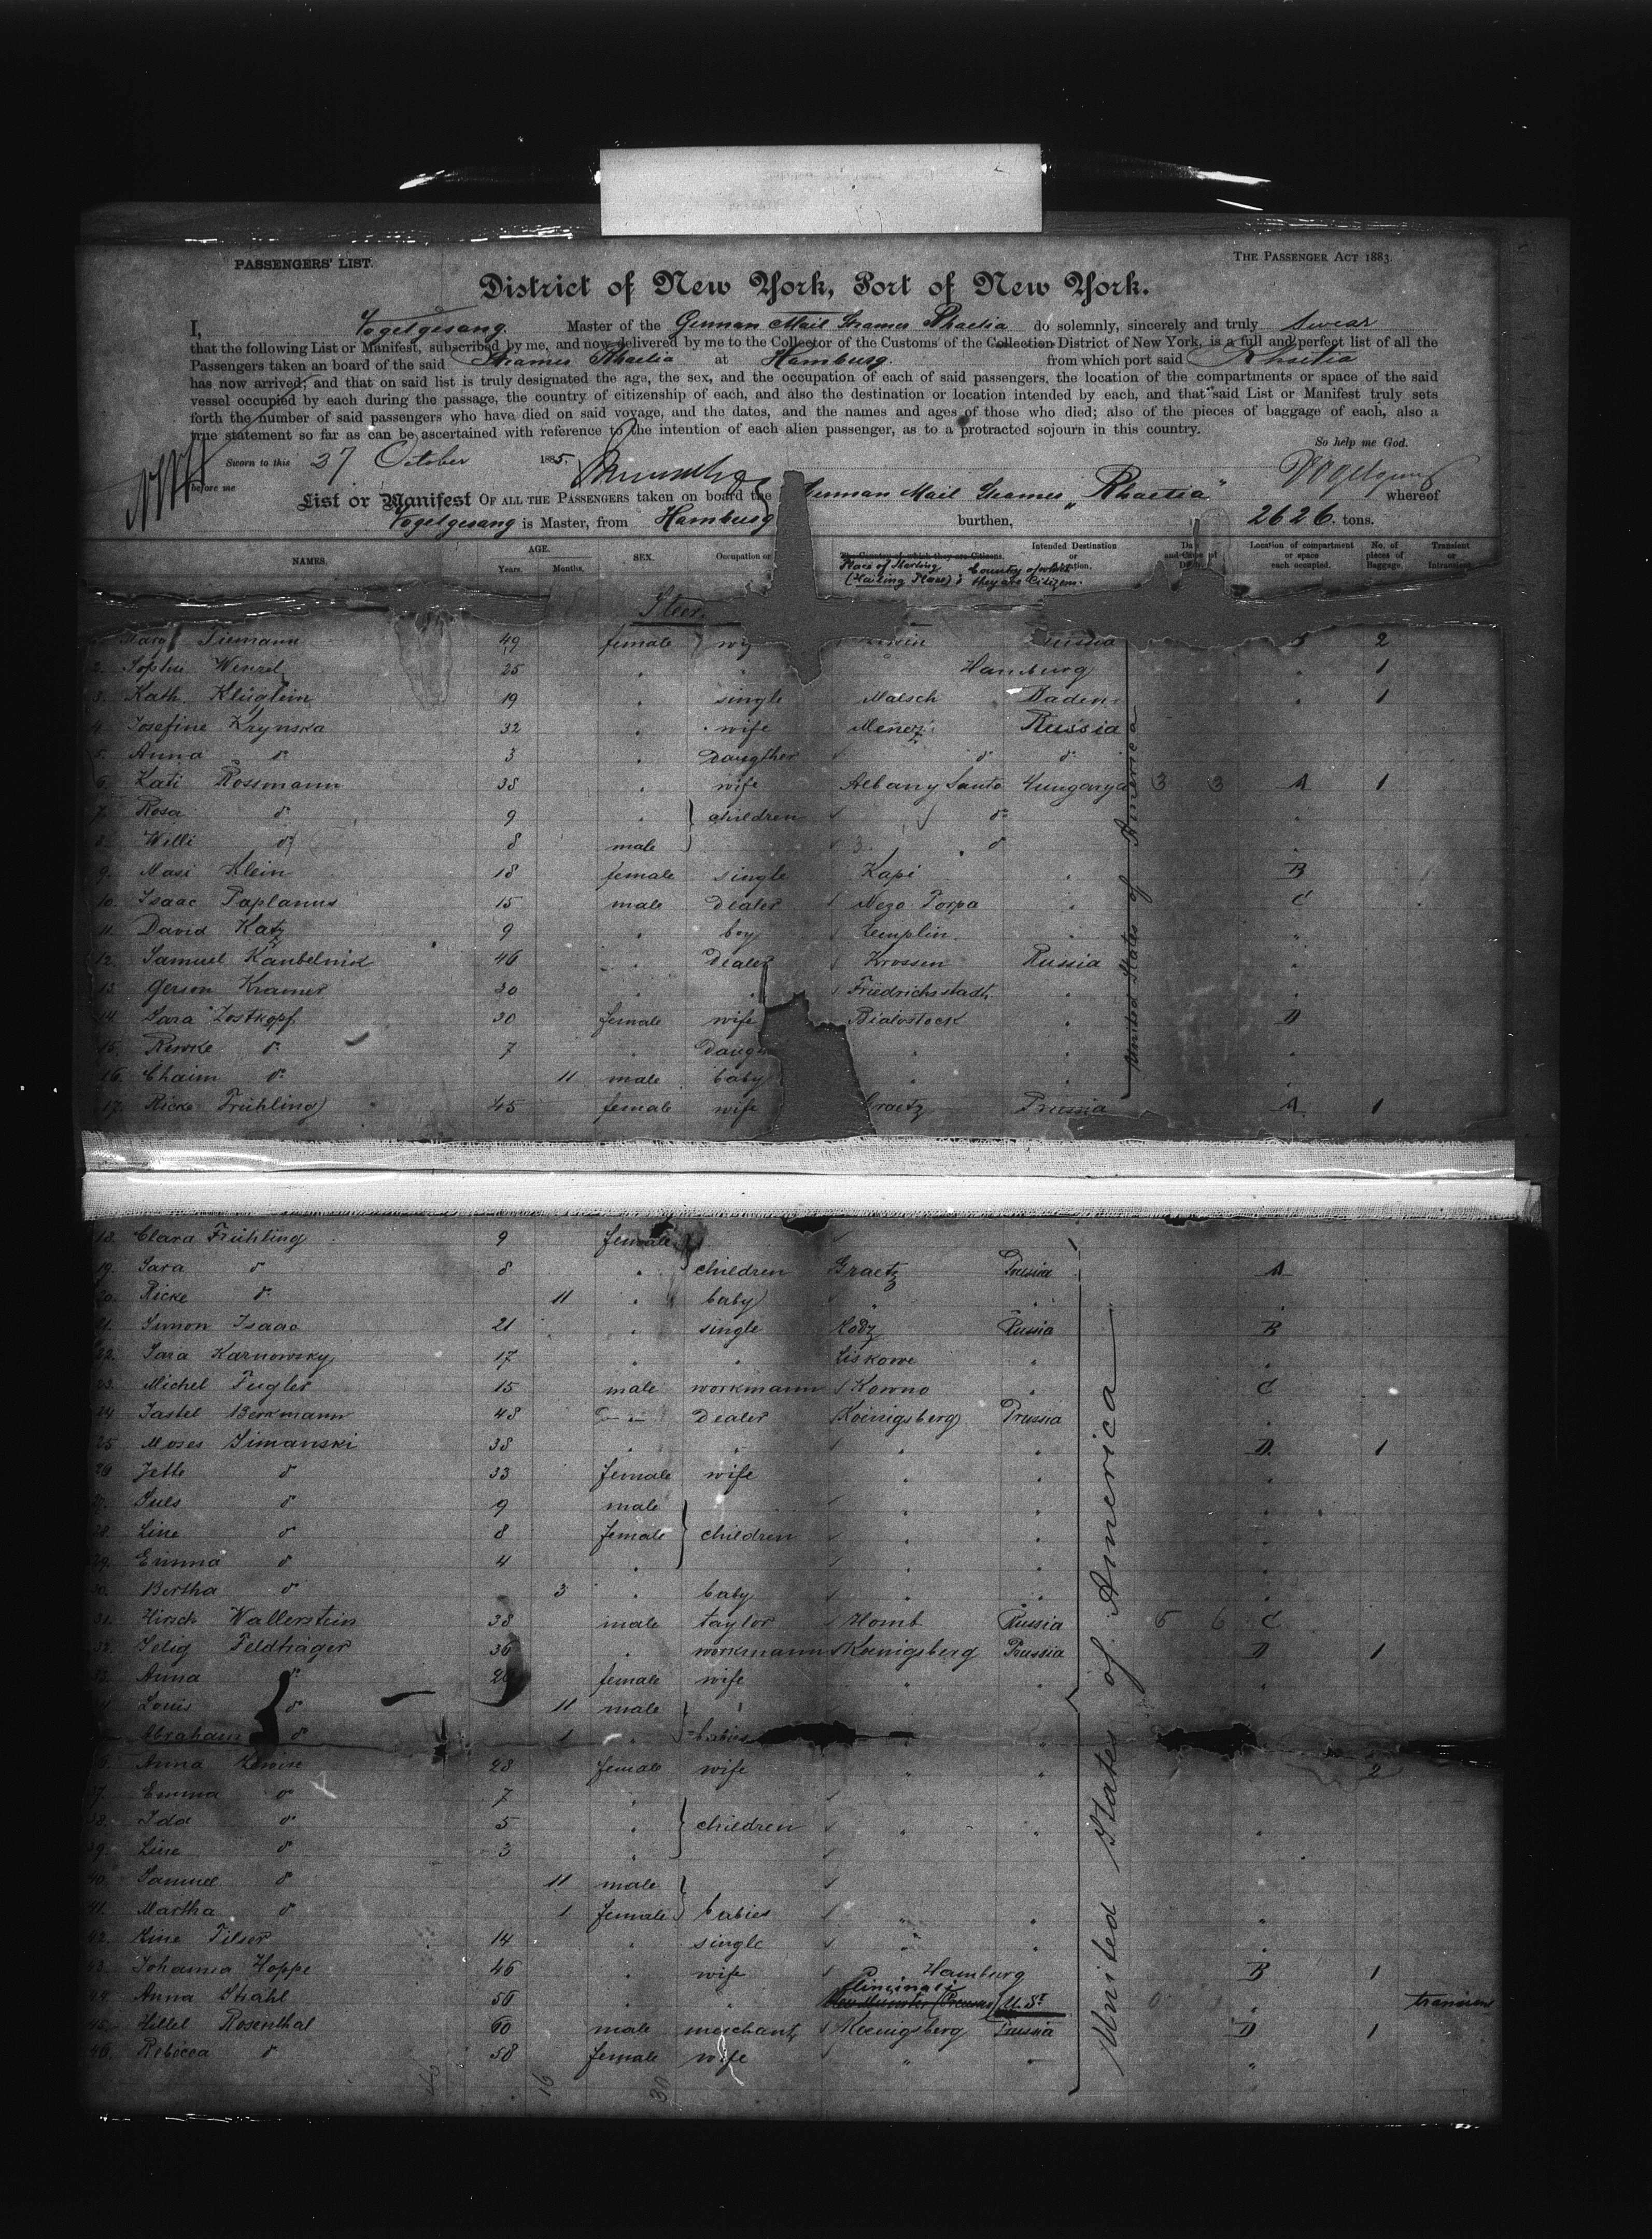 PASSENGERS' LIST.
THE PASSENGER ACT 1883.
District of New York, Port of New York.
I, Vogelgesang Master of the German Mail Steamer Rhaetia do solemnly, sincerely and truly swear
that the following List or Manifest, subscribed by me, and now delivered by me to the Collector of the Customs of the Collection District of New York, is a full and perfect list of all the
Passengers taken on board of the said Steamer Rhaetia at Hamburg. from which port said Rhaetia
has now arrived; and that on said list is truly designated the age, the sex, and the occupation of each of said passengers, the location of the compartments or space of the said
vessel occupied by each during the passage, the country of citizenship of each, and also the destination or location intended by each, and that said List or Manifest truly sets
forth the number of said passengers who have died on said voyage, and the dates, and the names and ages of those who died; also of the pieces of baggage of each, also a
true statement so far as can be ascertained with reference to the intention of each alien passenger, as to a protracted sojourn in this country.
So help me God.
Sworn to this 27 October 1885. Vogelgesang
before me
List or Manifest OF ALL THE PASSENGERS taken on board the German Mail Steamer "Rhaetia" whereof
Vogelgesang is Master, from Hamburg burthen, 2626. tons.
NAMES. AGE. Years. Months. SEX. Occupation or The Country of which they are Citizens. Place of Starting (Hailing Place) & Country of which they are Citizens. Intended Destination or Location. Location of compartment or space each occupied. No. of pieces of Baggage. Transient or
Steer.
Mary Tiemann 49 female Russia 2
2. Sophie Wenzel 25 " Hamburg " 1
3. Kath. Klüglein 19 " single Malsch Baden " 1
4. Josefine Krynska 32 " wife Russia
5. Anna do 3 " Daugther do do
6. Kati Rossmann 38 " wife Albany Santo Hungarya 3 3 A 1
7. Rosa do 9 " children do "
8. Willi do 8 male do "
9. Masi Klein 18 female single Kapi " B
10. Isaac Paplanus 15 male Dealer Nezo Porpa " C
11. David Katz 9 " boy Templin " "
12. Samuel Kanbelnick 46 " Dealer Krossen Russia "
13. Gerson Kramer 30 " " Friedrichsstadt " "
14 Sara Zostkopf 30 female wife Bialostock " D
15. Rewke do 7 " Daug " " "
16. Chaim do 11 male baby " " "
17. Ricke Frühling 45 female wife Graetz Prussia A 1
United States of America
18. Clara Frühling 9 female
19. Sara do 8 " children Graetz Prussia A
20. Ricke do 11 " baby " " "
21. Simon Isaac 21 " single Lodz Russia B
22. Sara Karnowsky 17 " " Liskowe " "
23. Michel Feigler 15 male workmann Kowno " C
24 Jastel Berkmann 48 Dealer Koenigsberg Prussia "
25 Moses Simanski 38 " " " " D 1
26 Jette do 33 female wife " " "
27. Juls do 9 male " " "
28. Line do 8 female children " " "
29. Emma do 4 " " " "
30. Bertha do 3 " baby " " "
31. Hirsch Wallerstein 38 male taylor Homb Russia 5 6 C
32. Selig Feldträger 36 " workmann Koenigsberg Prussia D 1
33. Anna do female wife " " "
Louis do 11 male
Abraham do 1 " babies "
Anna 28 female wife " " 2
37. Emma do 7 "
38. Ida do 5 " children " " "
39. Line do 3 " "
40. Samuel do 11 male
41. Martha do 1 female babies " " "
42. Line Filser 14 " single " " "
43. Johanna Hoppe 46 " wife Hamburg B 1
44. Anna Strahl 56 " " U. St. " transient
45. Hillel Rosenthal 60 male merchant Koenigsberg Prussia D 1
46. Rebecca do 58 female wife " " "
United States of America
46 16 30